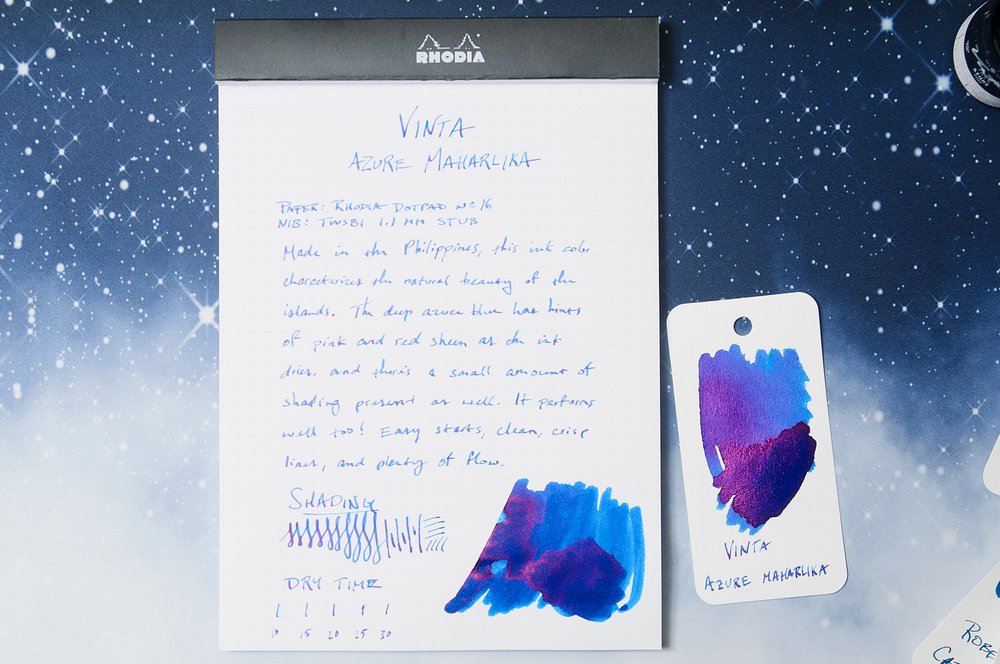 RHODIA
VINTA
AZURE MAHARLIKA
PAPER: RHODIA DOTPAD Nº16
NIB: TWSBI 1.1 MM STUB
Made in the Philippines, this ink color
characterizes the natural beauty of the
islands. The deep azure blue has hints
of pink and red sheen as the ink
dries, and there's a small amount of
shading present as well. It performs
well too! Easy starts, clean, crisp
lines, and plenty of flow.
SHADING
DRY TIME
10 15 20 25 30
VINTA
AZURE MAHARLIKA